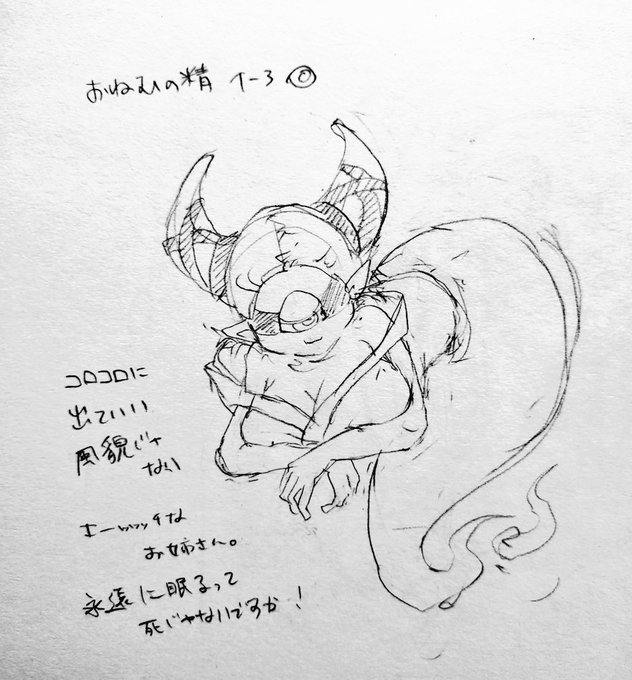 おねむの精 イーラ
コロコロに
出ていい
風貌じゃ
ない
えーッッッチな
お姉さん。
永遠に眠るって
死じゃないですか！